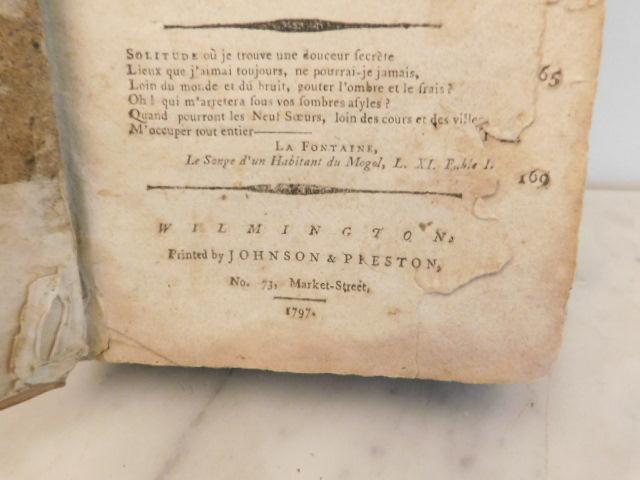 SOLITUDE où je trouve une douceur secrète
Lieux que j'aimai toujours, ne pourrai-je jamais,
Loin du monde et du bruit, gouter l'ombre et le frais?
Oh! qui m'arretera sous vos sombres asyles?
Quand pourront les Neuf Sœurs, loin des cours et des villes
M'occuper tout entier———
LA FONTAINE,
Le Songe d'un Habitant du Mogol, L. XI. Fable I.
WILMINGTON,
Printed by JOHNSON & PRESTON,
No. 73, Market-Street,
1797.
65
169